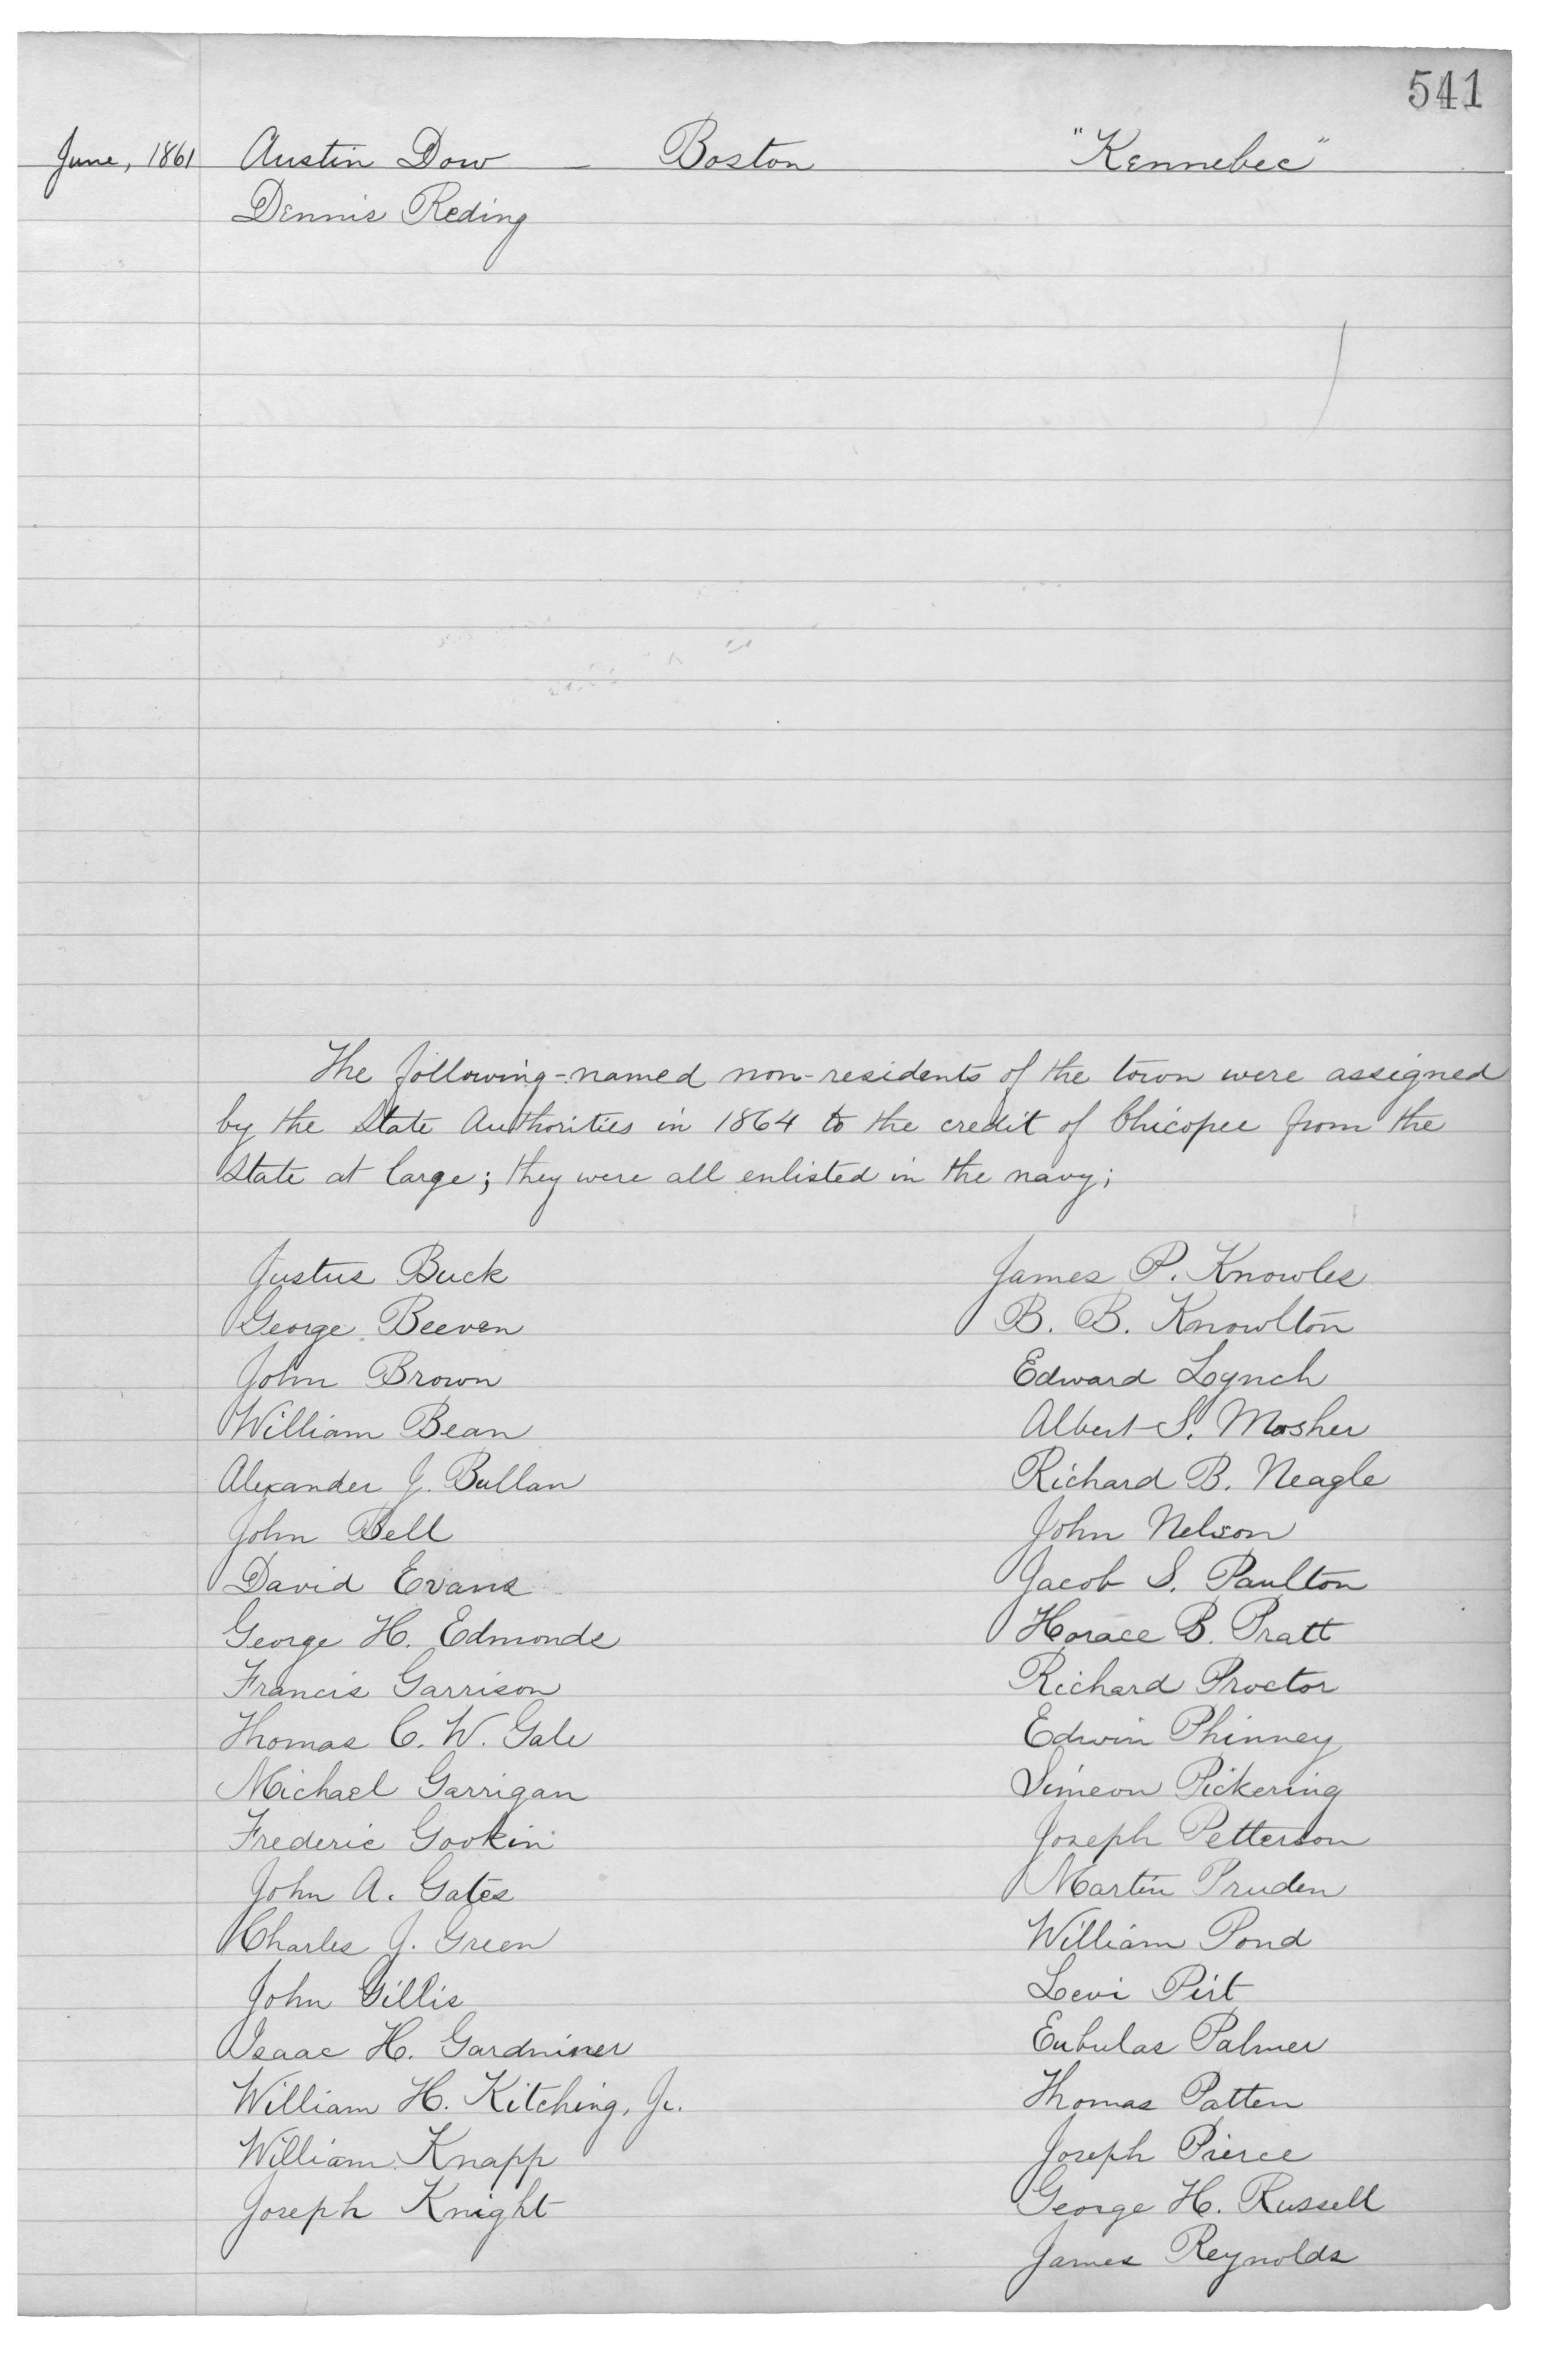 541
June, 1861 Austin Dow — Boston "Kennebec"
Dennis Reding
The following-named non-residents of the town were assigned
by the State Authorities in 1864 to the credit of Chicopee from the
State at large; they were all enlisted in the navy;
Justus Buck
George Beeven
John Brown
William Bean
Alexander J. Bullan
John Bell
David Evans
George H. Edmonds
Francis Garrison
Thomas C. W. Gale
Michael Garrigan
Frederic Gookin
John A. Gates
Charles J. Green
John Gillis
Isaac H. Gardniner
William H. Kitching, Jr.
William Knapp
Joseph Knight
James P. Knowles
B. B. Knowlton
Edward Lynch
Albert S. Mosher
Richard B. Neagle
John Nelson
Jacob S. Paulton
Horace B. Pratt
Richard Proctor
Edwin Phinney
Simeon Pickering
Joseph Petterson
Martin Pruden
William Pond
Levi Pirt
Eubulas Palmer
Thomas Patten
Joseph Pierce
George H. Russell
James Reynolds